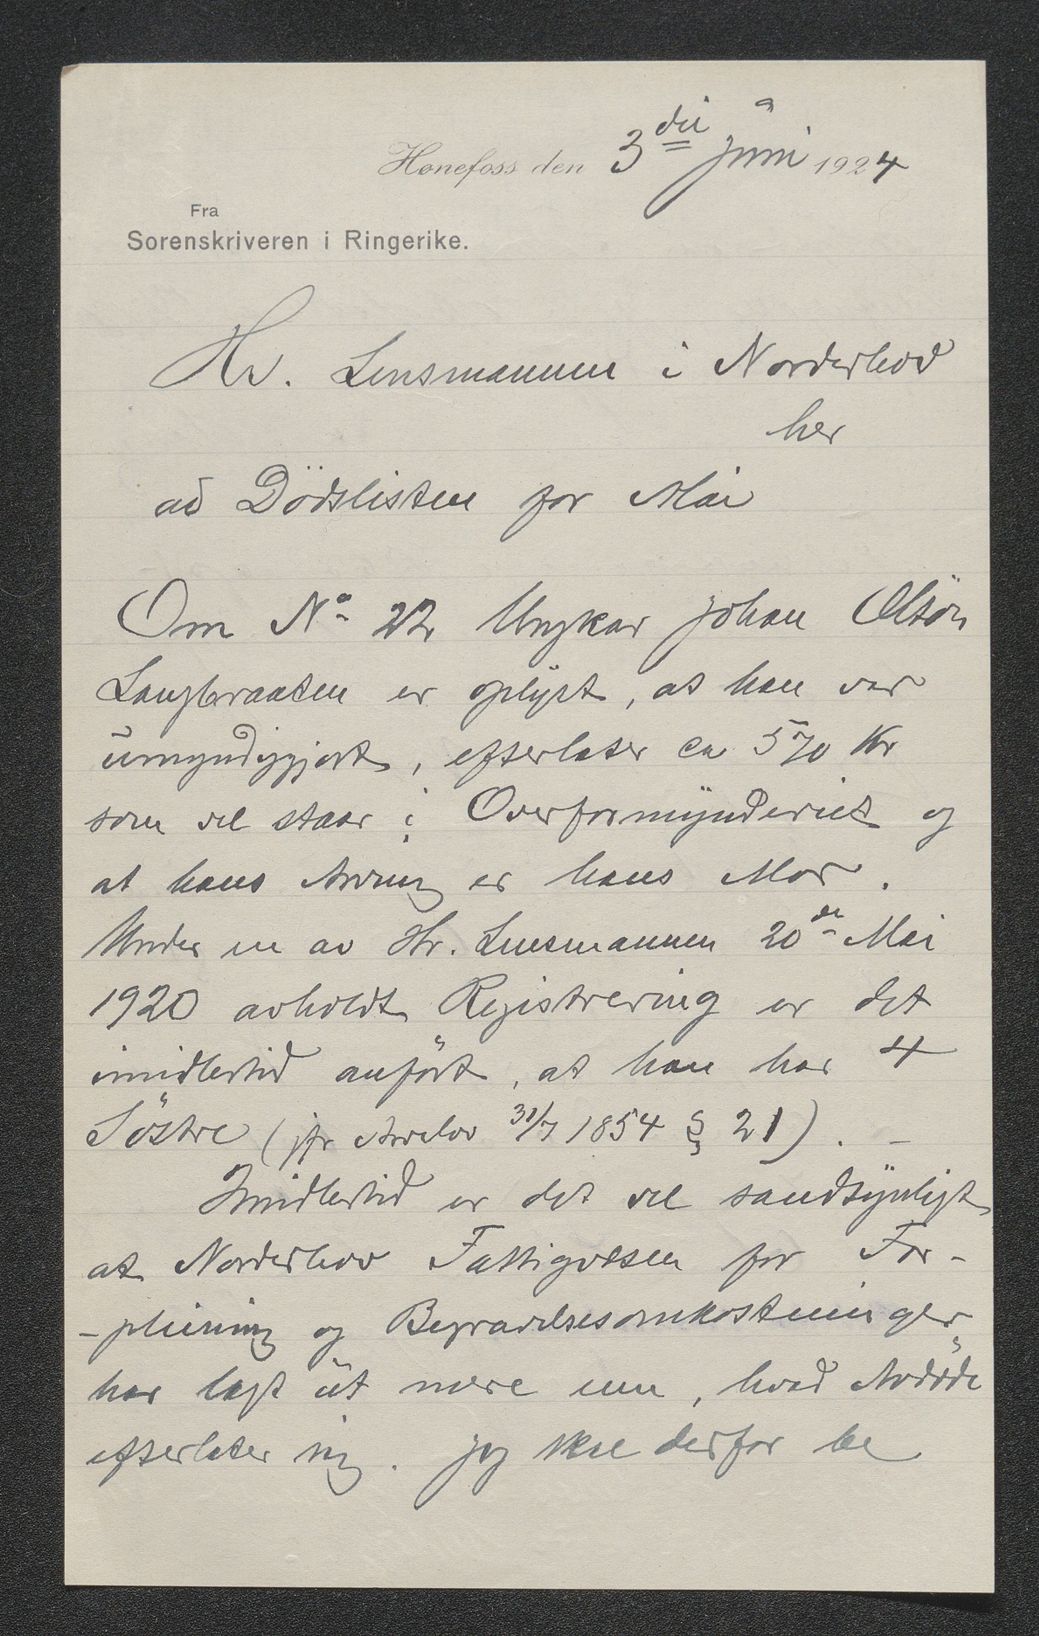 Hønefoss den 3die Juni 1924
Fra
Sorenskriveren i Ringerike.
Hr. Lensmannen i Norderhov
her
ad Dödslisten for Mai
Om No 22 Ungkar Johan Olsön
Langbraaten er oplyst, at han var
umyndiggjort, efterlater ca 570 Kr
som vel staar i Overformynderiet og
at hans Arving er hans Mor.
Under en av Hr. Lensmannen 20de Mai
1920 avholdt Registrering er det
imidlertid anfört, at han har 4
Söstre (jfr Arvelov 31/7 1854 § 21). –
Imidlertid er det vel sandsynligt
at Norderhov Fattigvæsen for For-
-pleining og Begravelsesomkostninger
har lagt ut mere enn, hvad Avdöde
efterlater sig. Jeg skal derfor be